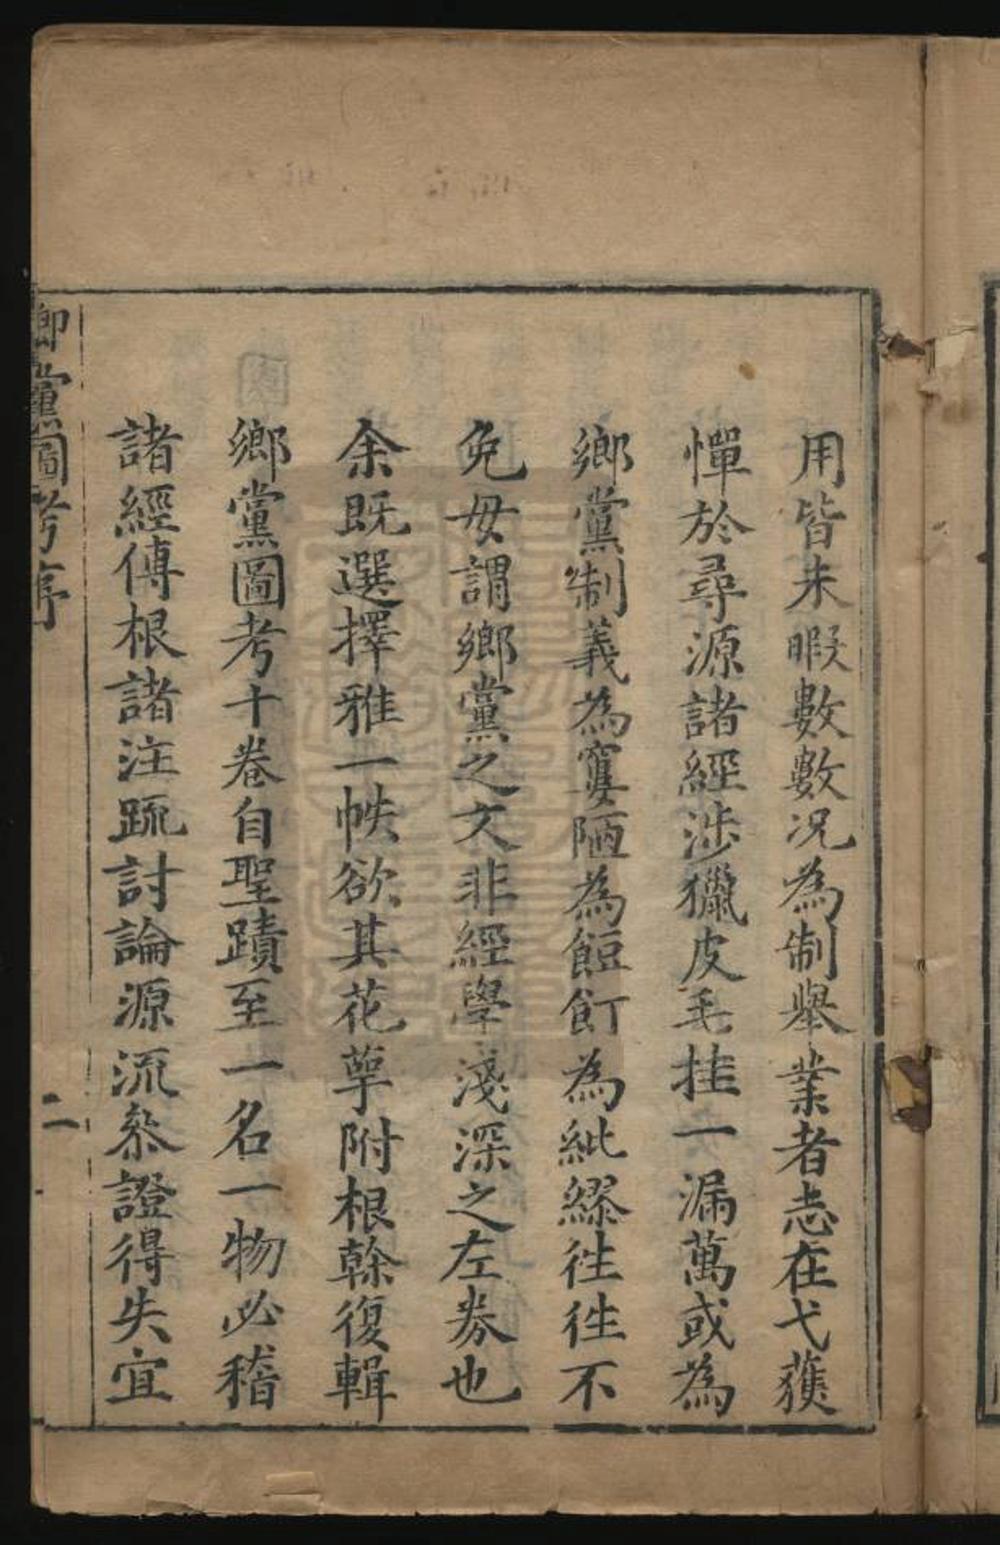 用皆未暇數數况為制舉業者志在弋獲
憚於尋源諸經涉獵皮毛挂一漏萬或為
鄉黨制義為窶陋為餖飣為紕繆徃徃不
免毋謂鄉黨之文非經學淺深之左券也
余既選擇雅一帙欲其花萼附根榦復輯
鄉黨圖考十卷自聖蹟至一名一物必稽
諸經傳根諸注疏討論源流叅證得失宜
鄉黨圖考序
二